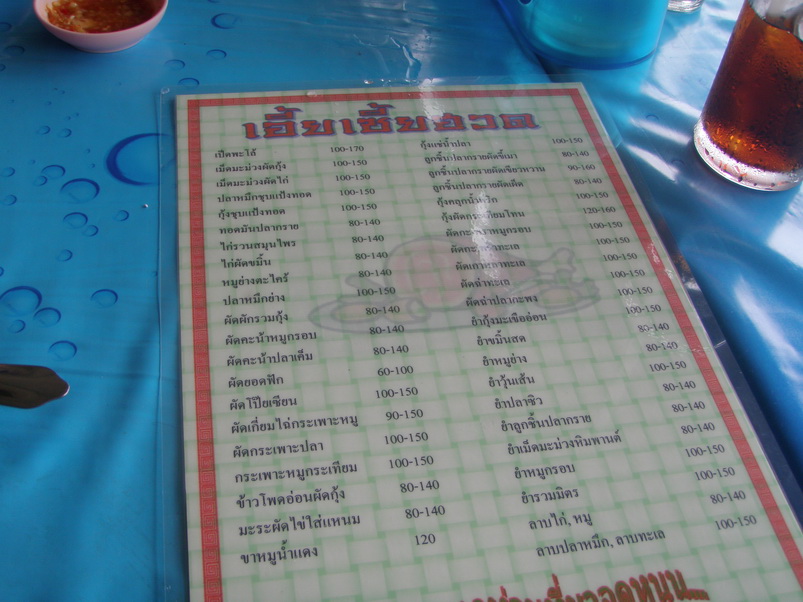 เฮี้ยเซี้ยฮวด
เป็ดพะโล้ 100-170
เม็ดมะม่วงผัดกุ้ง 100-150
เม็ดมะม่วงผัดไก่ 100-150
ปลาหมึกชุบแป้งทอด 100-150
กุ้งชุบแป้งทอด 100-150
ทอดมันปลากราย 80-140
ไก่รวนสมุนไพร 80-140
ไก่ผัดขมิ้น 80-140
หมูย่างตะไคร้ 80-140
ปลาหมึกย่าง 100-150
ผัดผักรวมกุ้ง 80-140
ผัดคะน้าหมูกรอบ 80-140
ผัดคะน้าปลาเค็ม 80-140
ผัดยอดฟัก 60-100
ผัดโป๊ยเซียน 100-150
ผัดเกี่ยมไฉ่กระเพาะหมู 90-150
ผัดกระเพาะปลา 100-150
กระเพาะหมูกระเทียม 100-150
ข้าวโพดอ่อนผัดกุ้ง 80-140
มะระผัดไข่ใส่แหนม 80-140
ขาหมูน้ำแดง 120
กุ้งแช่น้ำปลา 100-150
ลูกชิ้นปลากรายผัดขี้เมา 80-140
ลูกชิ้นปลากรายผัดเขียวหวาน 90-160
ลูกชิ้นปลากรายผัดเผ็ด 80-140
กุ้งคลุกน้ำพริก 100-150
กุ้งผัดกระเทียมโทน 120-160
100-150
100-150
100-150
ผัดฉ่าทะเล 100-150
ผัดฉ่าปลากะพง 100-150
ยำกุ้งมะเขืออ่อน 100-150
ยำขมิ้นสด 100-150
ยำหมูย่าง 80-140
ยำวุ้นเส้น 80-140
ยำปลาซิว 100-150
ยำลูกชิ้นปลากราย 80-140
ยำเม็ดมะม่วงหิมพานต์ 80-140
ยำหมูกรอบ 80-140
ยำรวมมิตร 100-150
ลาบไก่, หมู 100-150
ลาบปลาหมึก, ลาบทะเล 80-140
100-150